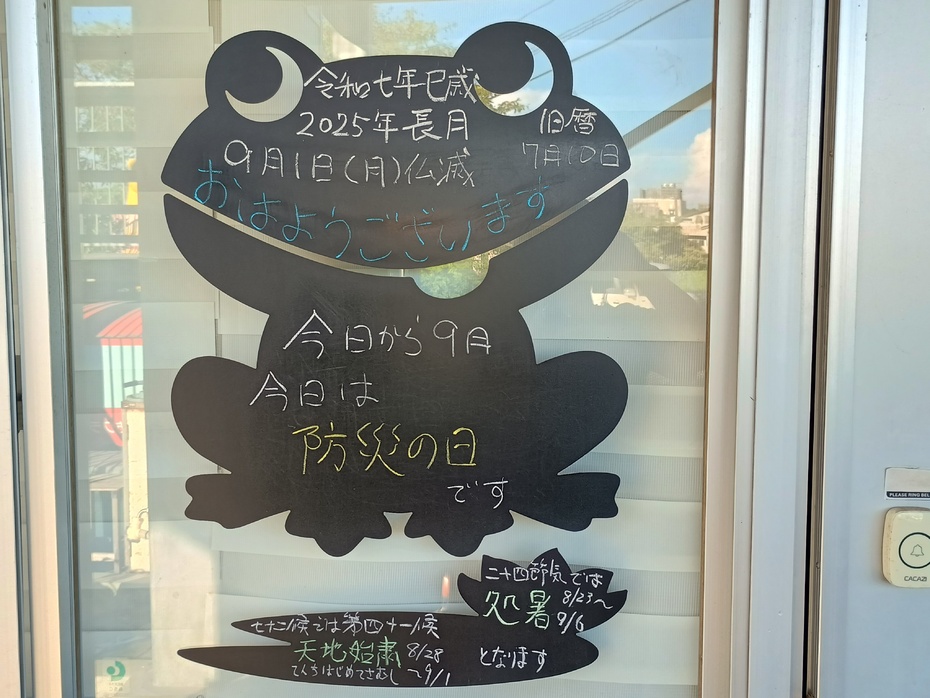 令和七年巳歳
2025年長月
旧暦
7月10日
9月1日(月)仏滅
おはようございます
今日から9月
今日は
防災の日
です
二十四節気では
処暑 8/23〜
9/6
七十二候では第四十一候
天地始粛 8/28
てんちはじめてさむし 〜9/1
となります
PLEASE RING BEL
CACAZI